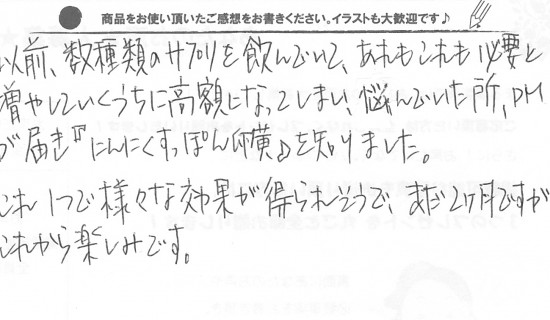 商品をお使い頂いたご感想をお書きください。イラストも大歓迎です♪
以前、数種類のサプリを飲んでいて、あれもこれも必要と
増やしていくうちに高額になってしまい、悩んでいた所、DM
が届き『にんにくすっぽん
』を知りました。
これ1つで様々な効果が得られそうで、まだ2ヶ月ですが
これから楽しみです。